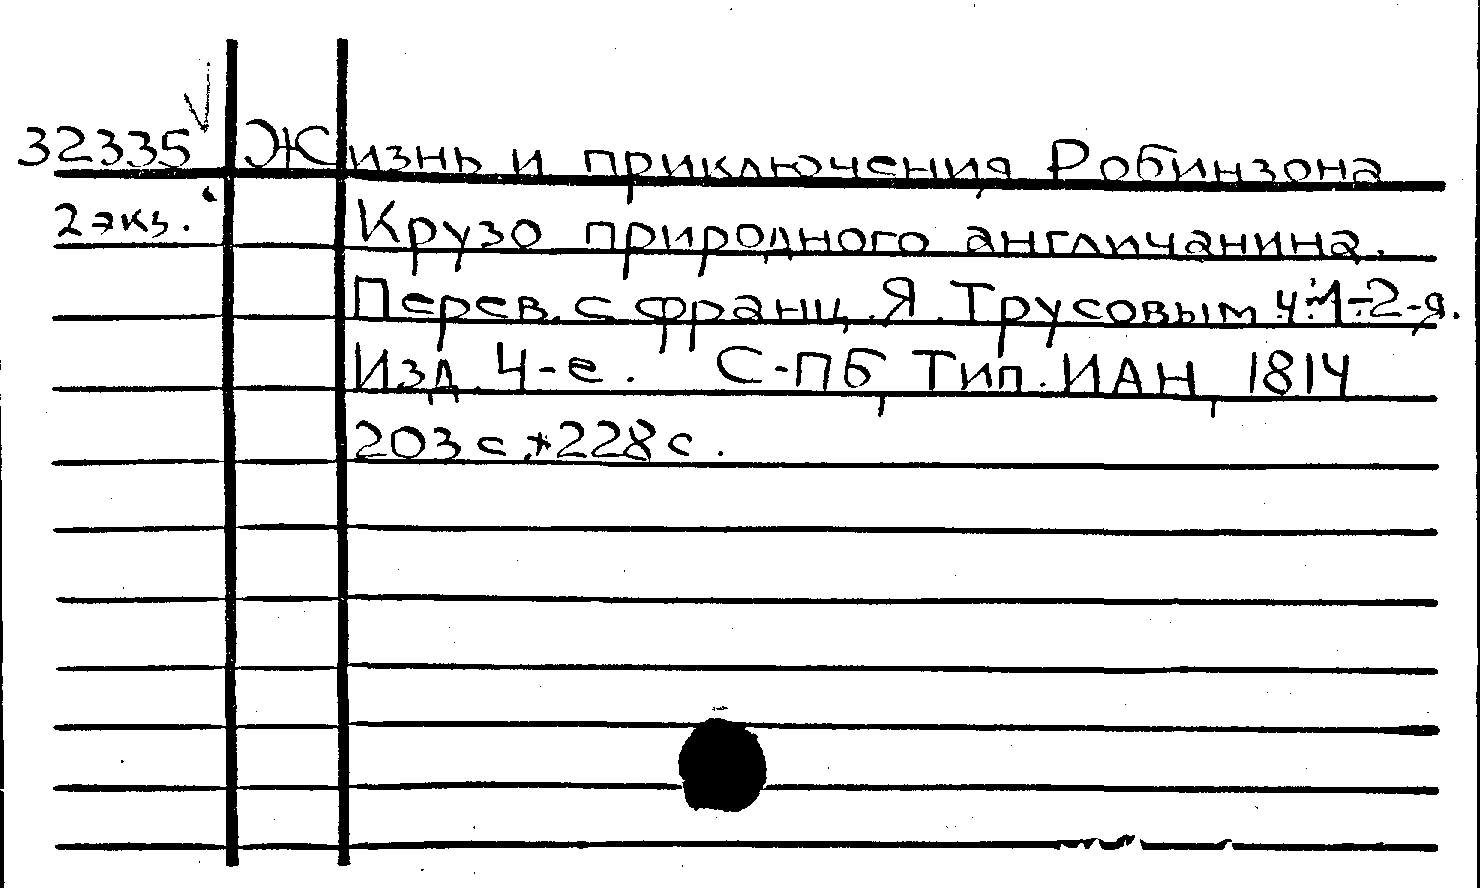 32335 Жизнь и приключения Робинзона
2 экз. Крузо природного англичанина.
Перев. с франц. Я. Трусовым ч. 1-2-я.
Изд. 4-е. С-ПБ, Тип. ИАН, 1814
203 с.*228 с.